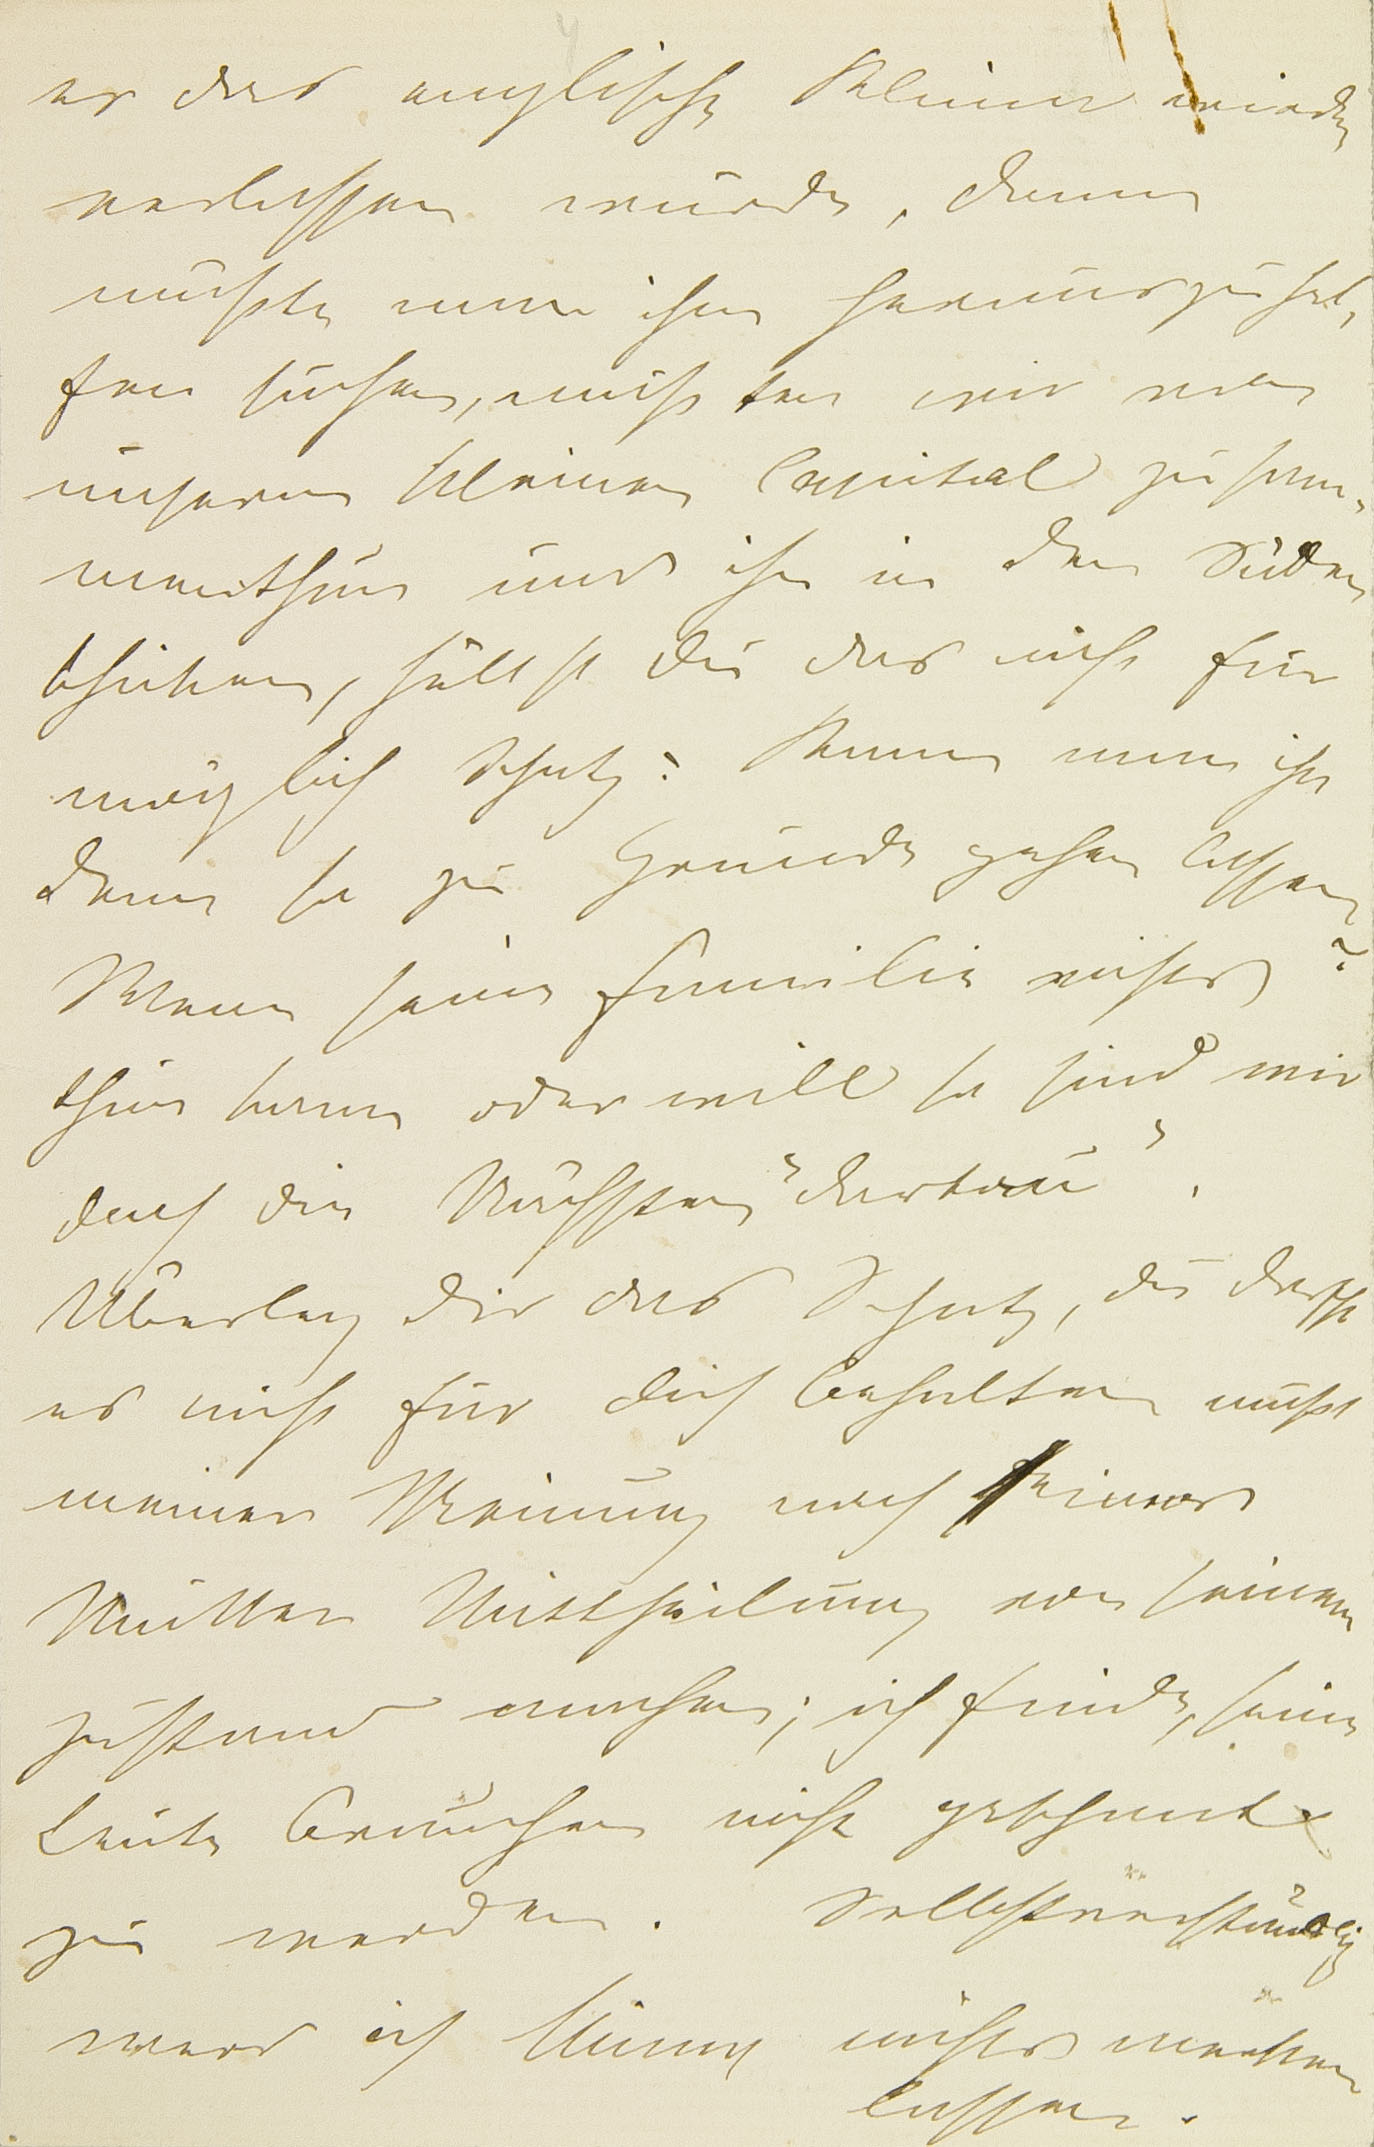 er das englische Klima wieder
verlassen würde, dann
müßte man ihm herauszuhel,
fen suchen, müßten wir von
unserm kleinen Capital zusam,
menthun und ihn in den Süden
schicken, hältst du das nicht für
möglich Schatz? Kann man ihn
denn so zu Grunde gehen lassen?
Wenn seine Familie nichts
thun kann oder will so sind wir
doch die Nächsten "dartau".
Überleg dir das Schatz, du darfst
es nicht für dich behalten mußt
meiner Meinung nach seiner
Mutter Mittheilung von seinem
Zustand machen; ich finde, seine
Leute brauchen nicht geschont
zu werden. Selbstverständlich
werd ich nichts merken
lassen.